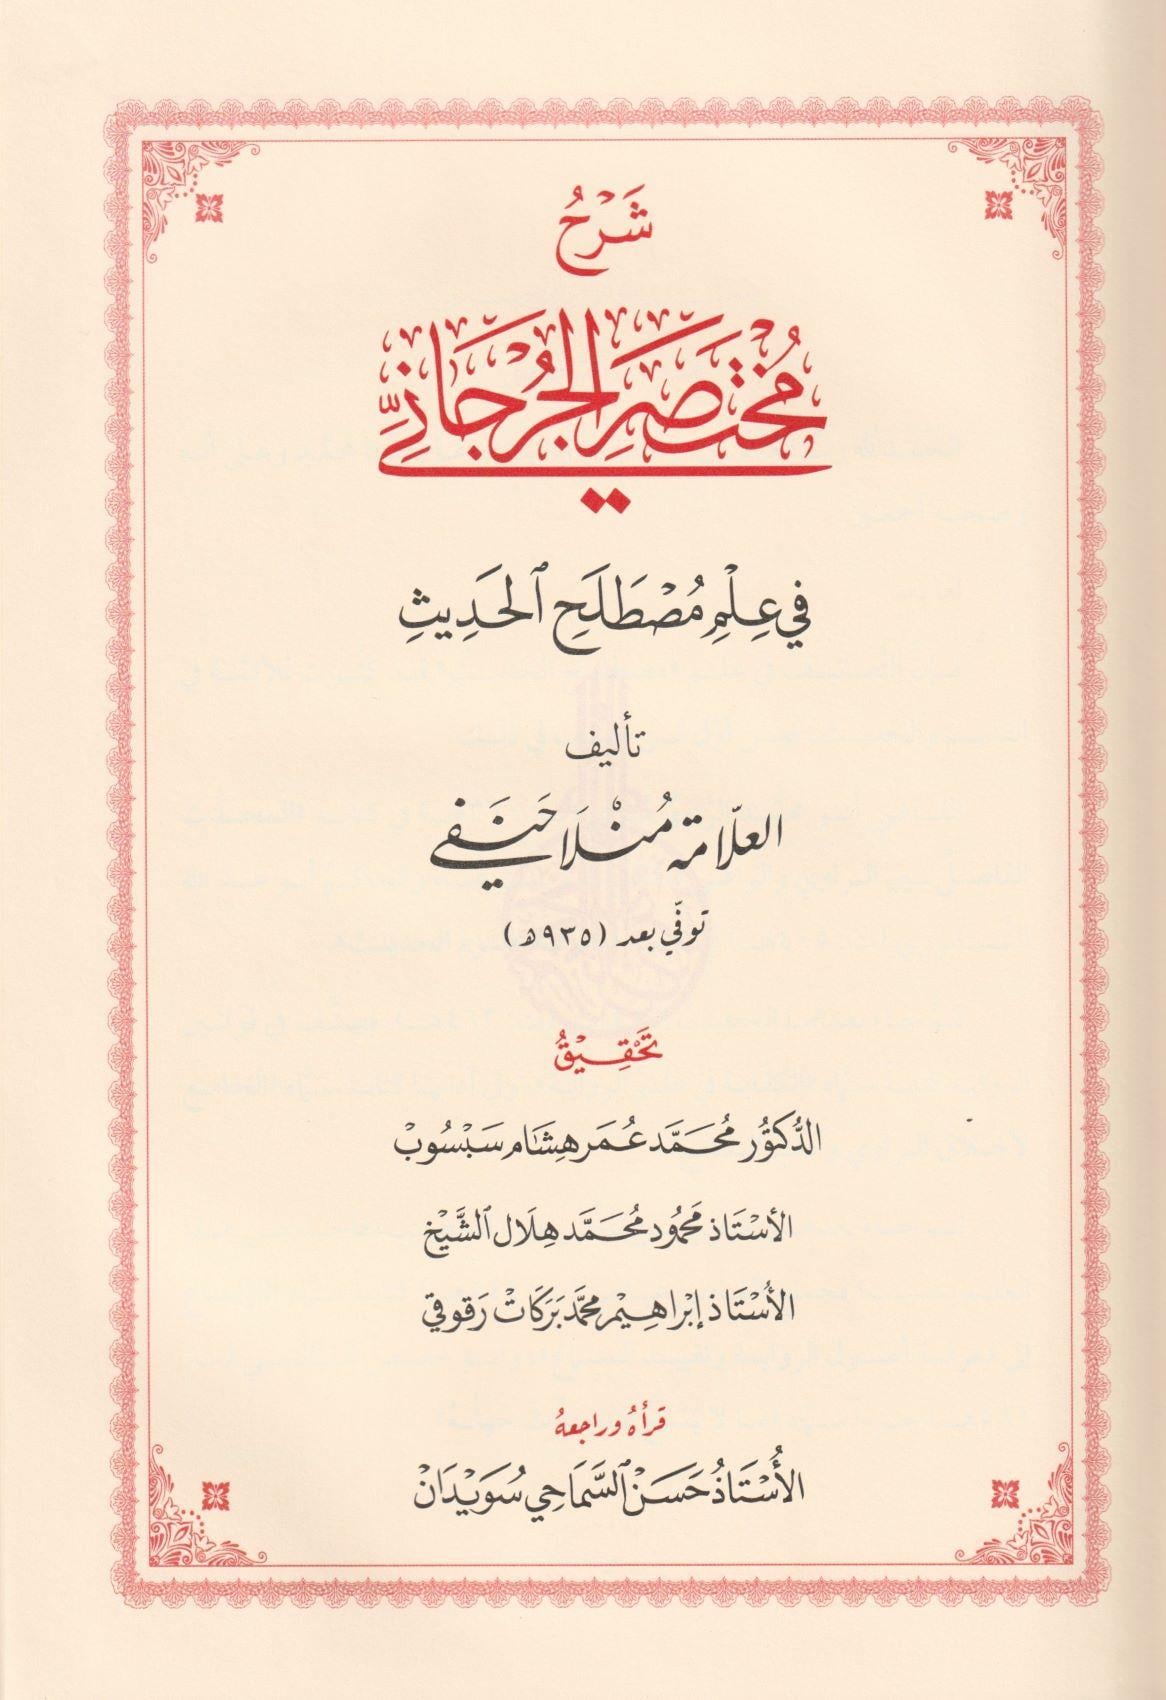 شَرْحُ
مُخْتَصَرِ الجُرْجَانِيِّ
فِي عِلْمِ مُصْطَلَحِ ٱلحَدِيثِ
تأليف
العلّامة مُنْلَا حَنَفي
توفّي بعد (٩٣٥ه)
تَحْقِيْقُ
الدُّكتُور مُحَمَّد عُمَر هِشَام سَبْسُوبْ
الأسْتَاذ مَحمُود مُحَمَّد هِلَال ٱلشَّيْخ
الأُسْتَاذ إبْرَاهِيْم محمَّد بَرَكَاتْ رَقوقي
قرأهُ وراجعهُ
الأُسْتَاذُ حَسَنْ ٱلسَّمَاحِي سُوَيْدَانْ